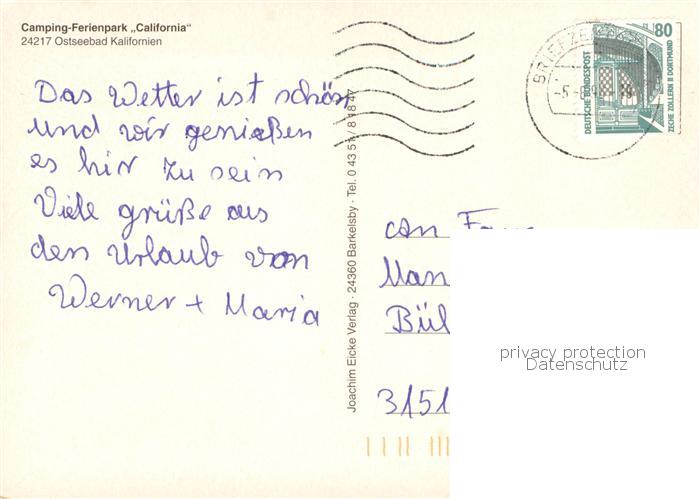 Camping-Ferienpark „California“
24217 Ostseebad Kalifornien
Das Wetter ist schön
und wir genießen
es hir zu sein
Viele grüße aus
den Urlaub von
Werner + Maria
Joachim Eicke Verlag · 24360 Barkelsby · Tel. 0 43 51 / 8 18 47
BRIEFZE
80
DEUTSCHE BUNDESPOST
ZECHE ZOLLERN II DORTMUND
an Fam
Man
Bül
3151
privacy protection
Datenschutz